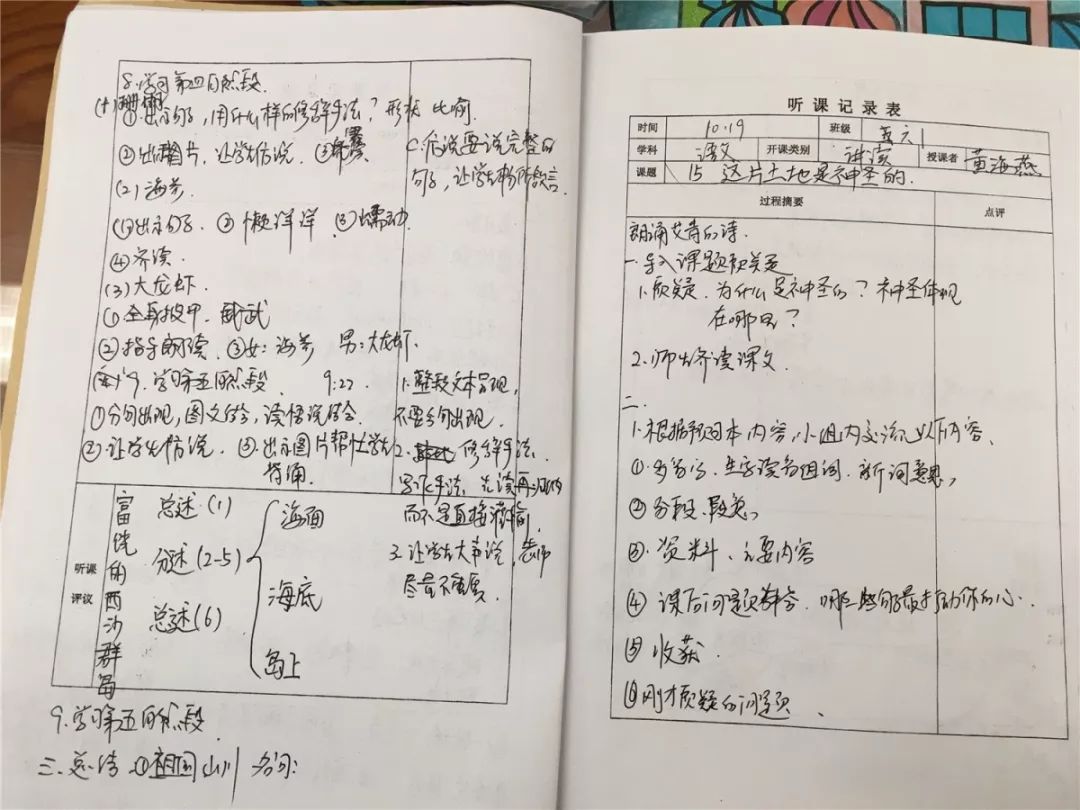 8.学习第四自然段.
(1)珊瑚
①出示句子,用什么样的修辞手法?形状 比喻
②出图片,让学生仿说.
(2)海参
①出示句子. ②懒洋洋 ③蠕动.
④齐读.
(3)大龙虾.
①全身披甲.威武
②指导朗读.③女:海参 男:大龙虾.
9.学习第五自然段. 9:27
①分句出现,图文结合,读悟说结合.
②让学生仿说.③出示图片帮助学生
背诵.
仿说要说完整的
句子,让学生
1.整段文本呈现,
不要分句出现.
2. 修辞手法.
写作手法,先读再
而不是直接灌输.
3.让学生大声说,老师
尽量不重复.
听课
评议
富饶的西沙群岛
总述(1)
分述(2-5)
总述(6)
海面
海底
岛上
9.学习第五自然段.
三.总结 ①祖国山川 名句:
听课记录表
时间 10.19 班级 五六
学科 语文 开课类别 讲读 授课者 黄海燕
课题 15 这片土地是神圣的.
过程摘要 点评
朗诵艾青的诗.
一.导入课题质疑
1.质疑.为什么是神圣的?神圣体现
在哪里?
2.师生齐读课文
二.
1.根据预习本内容,小组内交流以下内容.
①多音字.生字读音组词.新词意思,
②分段、段意,
③.资料、主要内容
④课后问题解答.哪些句子最打动你的心.
⑤收获.
⑥刚才质疑的问题.